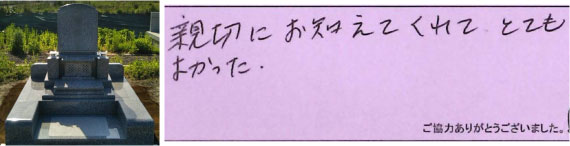 親切にお知えてくれて とても
よかった.
ご協力ありがとうございました。